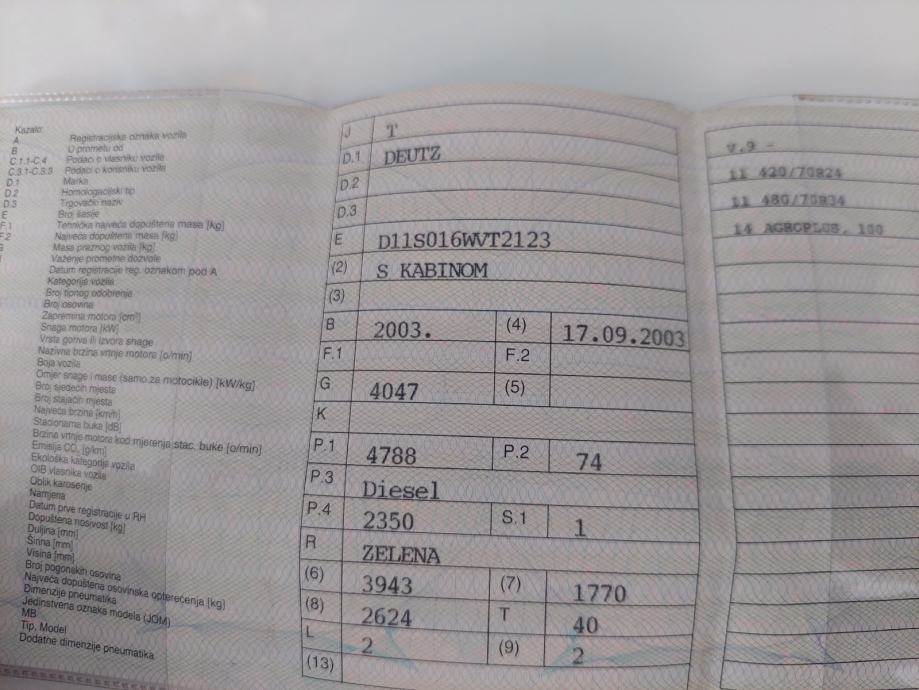 Kazalo:
A Registracijska oznaka vozila
B U prometu od
C.1.1-C.4 Podaci o vlasniku vozila
C.3.1-C.3.3 Podaci o korisniku vozila
D.1 Marka
D.2 Homologacijski tip
D.3 Trgovački naziv
E Broj šasije
F.1 Tehnička najveća dopuštena masa [kg]
F.2 Najveća dopuštena masa [kg]
G Masa praznog vozila [kg]
Važenje prometne dozvole
Datum registracije reg. oznakom pod A
Kategorija vozila
Broj tipnog odobrenje
Broj osovina
Zapremina motora [cm³]
Snaga motora [kW]
Vrsta goriva ili izvora snage
Nazivna brzina vrtnje motora [o/min]
Boja vozila
Omjer snage i mase (samo za motocikle) [kW/kg]
Broj sjedećih mjesta
Broj stajaćih mjesta
Najveća brzina [km/h]
Stacionarna buka [dB]
Brzina vrtnje motora kod mjerenja stac. buke [o/min]
Emisija CO₂ [g/km]
Ekološka kategorija vozila
OIB vlasnika vozila
Oblik karoserije
Namjena
Datum prve registracije u RH
Dopuštena nosivost [kg]
Duljina [mm]
Širina [mm]
Visina [mm]
Broj pogonskih osovina
Najveća dopuštena osovinska opterećenja [kg]
Dimenzije pneumatika
Jedinstvena oznaka modela (JOM)
MB
Tip, Model
Dodatne dimenzije pneumatika
J T
D.1 DEUTZ
D.2
D.3
E D11S016WVT2123
(2) S KABINOM
(3)
B 2003. (4) 17.09.2003
F.1 F.2
G 4047 (5)
K
P.1 4788 P.2 74
P.3 Diesel
P.4 2350 S.1 1
R ZELENA
(6) 3943 (7) 1770
(8) 2624 T 40
L 2 (9) 2
(13)
11 420/70R24
11 480/70R34
14 AGROPLUS, 100